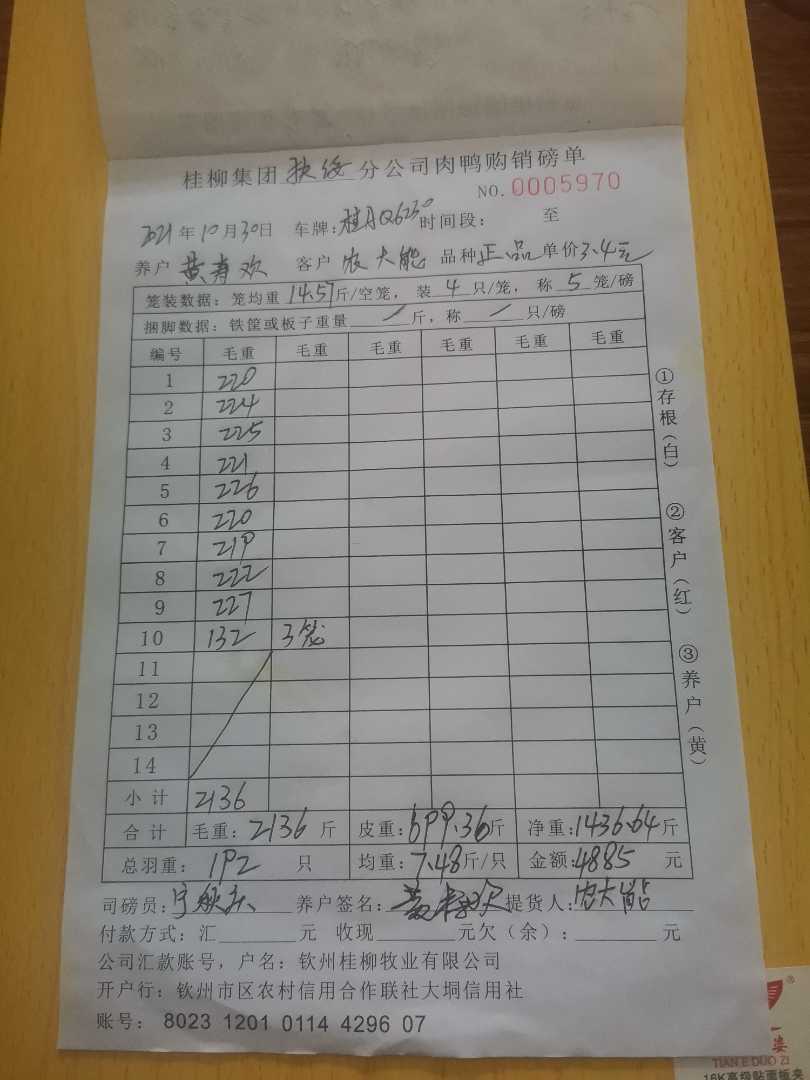 桂柳集团扶绥分公司肉鸭购销磅单
NO.0005970
2021年10月30日 车牌:桂AQ6230 时间段: 至
养户 黄寿欢 客户 农大能 品种正品 单价3.4元
笼装数据:笼均重14.57斤/空笼,装4只/笼,称5笼/磅
捆脚数据:铁筐或板子重量/斤,称/只/磅
编号 毛重 毛重 毛重 毛重 毛重 毛重
1 220
2 224
3 225
4 221
5 226
6 220
7 219
8 222
9 227
10 132 3笼
11
12
13
14
小计 2136
合计 毛重:2136斤 皮重:699.36斤 净重:1436.64斤
总羽重:192只 均重:7.48斤/只 金额:4885元
司磅员: 养户签名:黄寿欢 提货人:农大能
付款方式:汇 元 收现 元欠(余): 元
公司汇款账号,户名:钦州桂柳牧业有限公司
开户行:钦州市区农村信用合作联社大垌信用社
账号:8023 1201 0114 4296 07
①存根(白)
②客户(红)
③养户(黄)
TIAN E DUO ZI